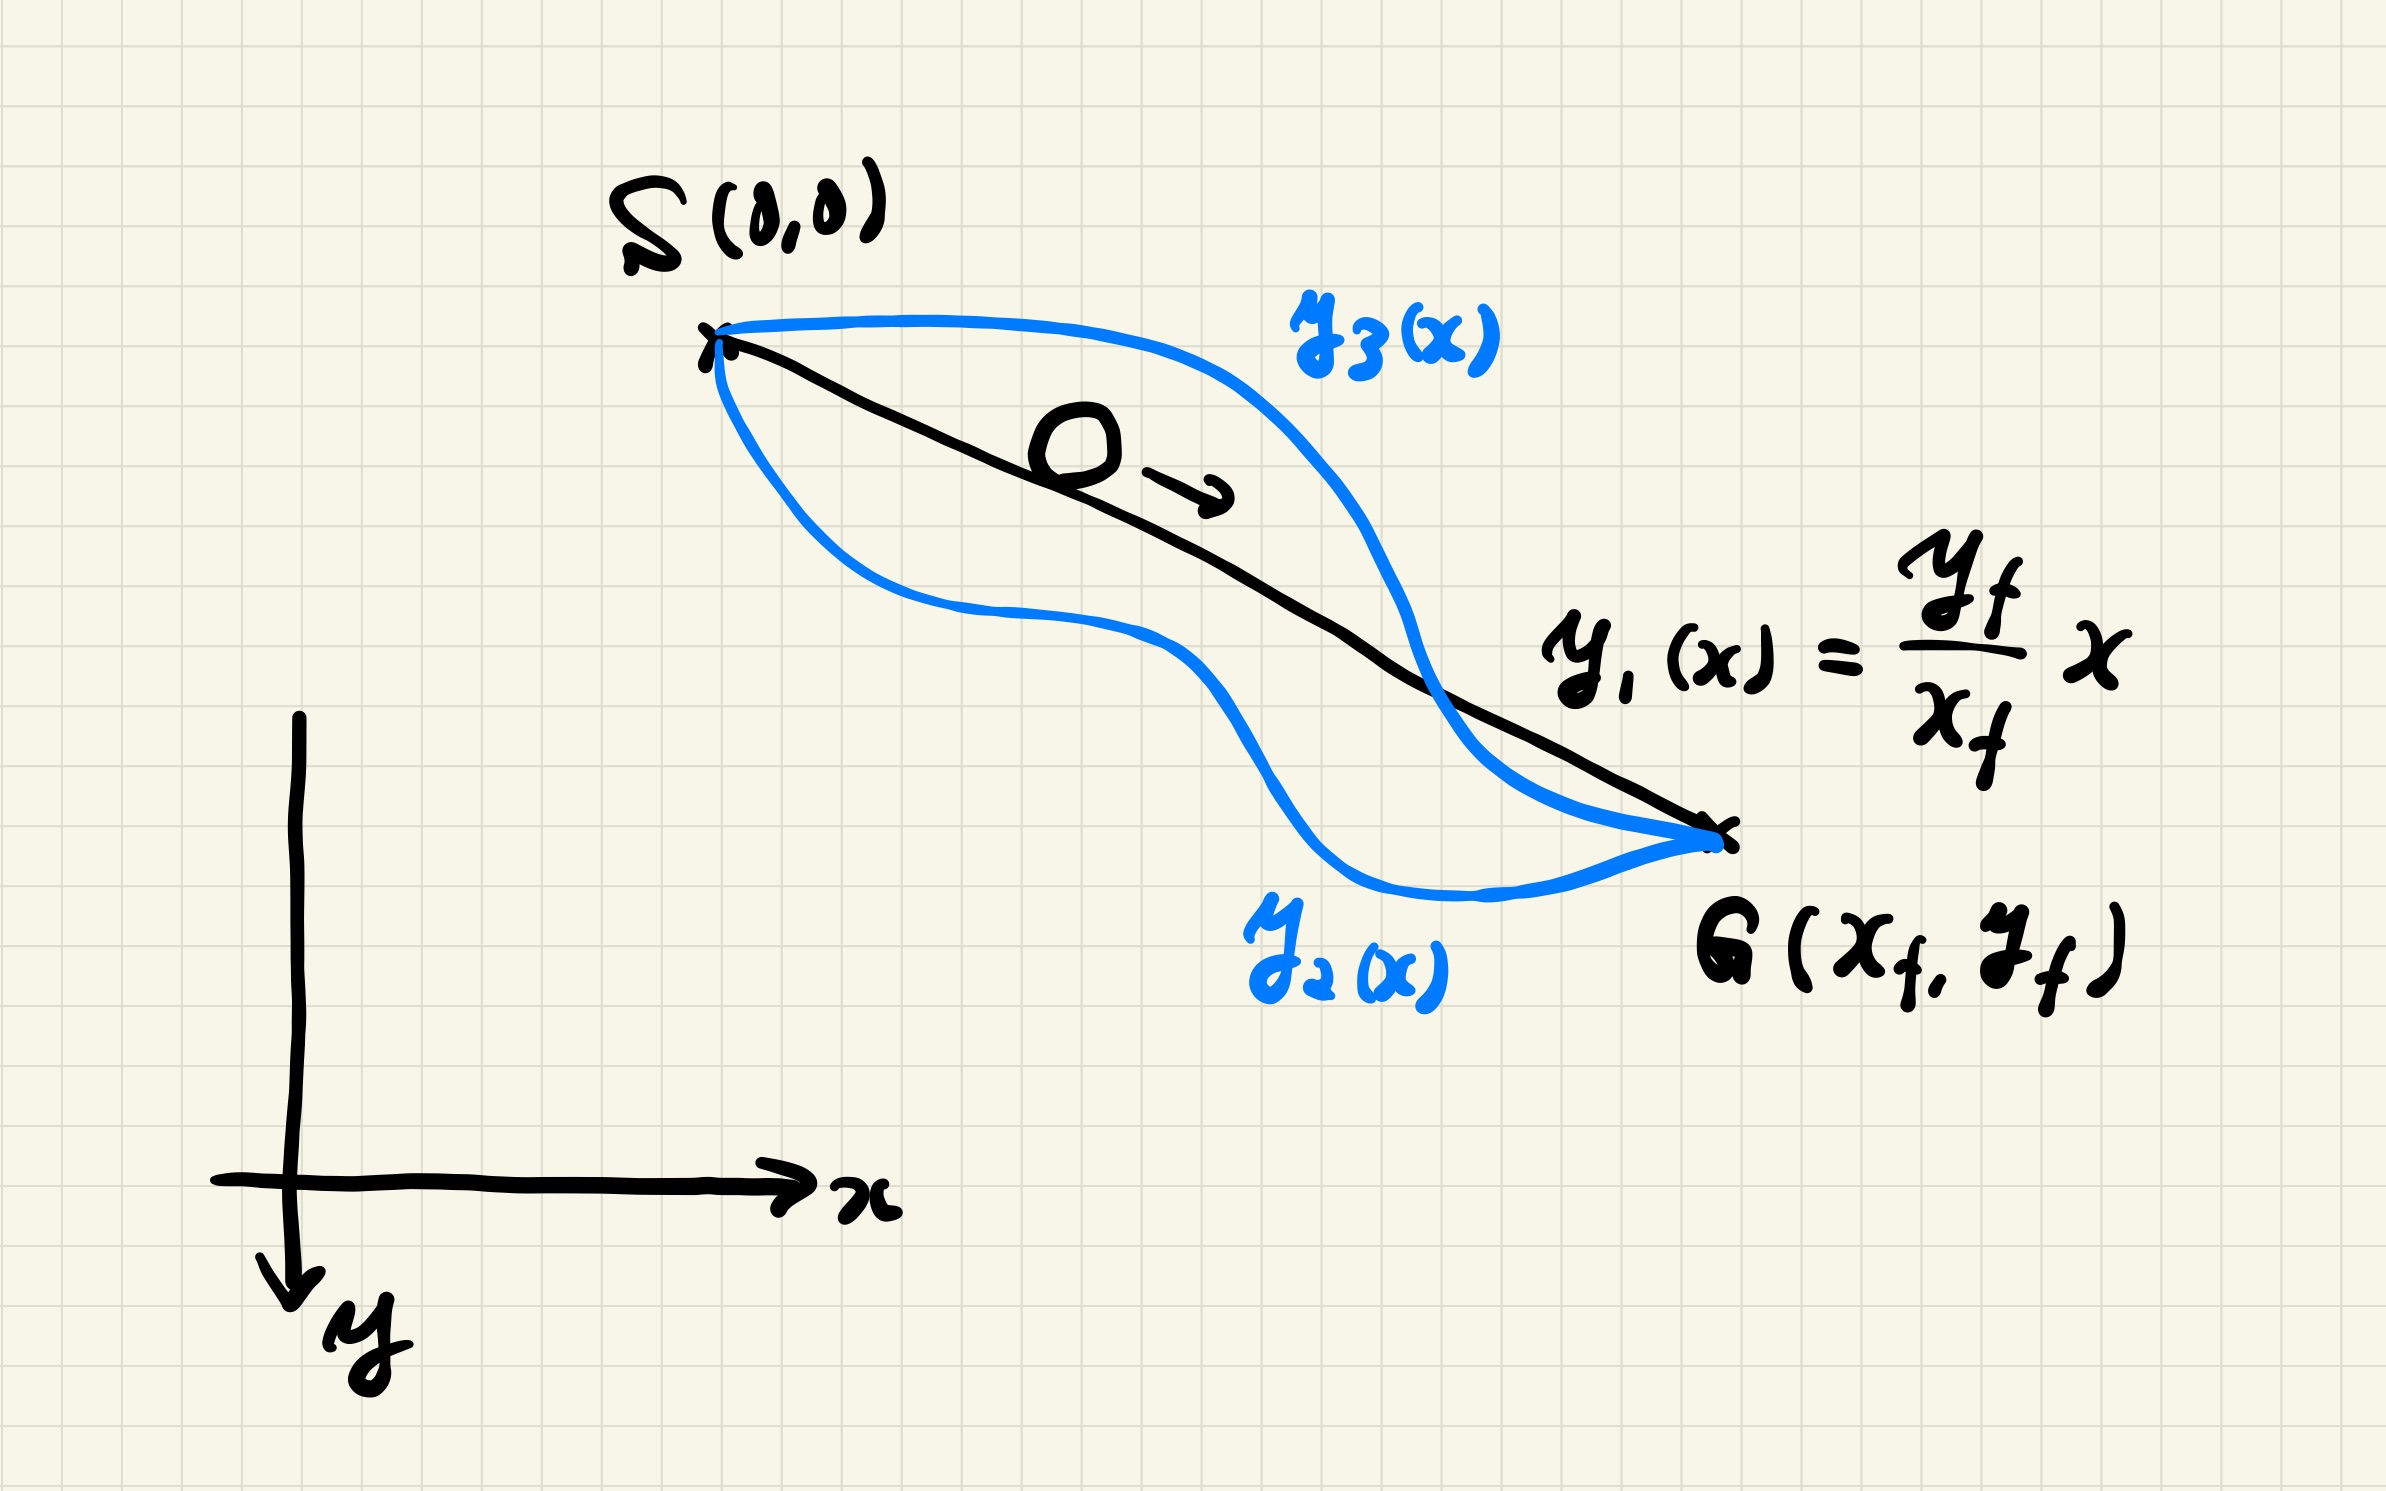 S(0,0)
y₃(x)
y₁(x) = y_f/x_f x
y₂(x)
G(x_f, y_f)
x
y